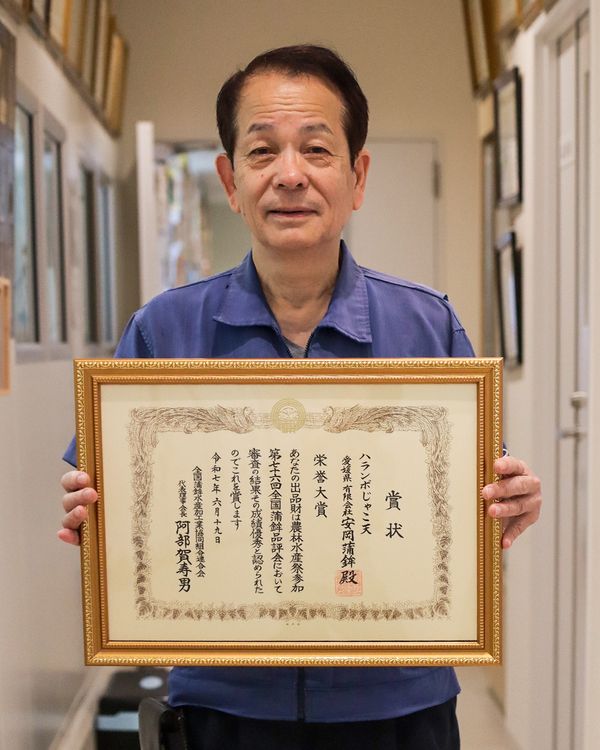 賞状
ハランボじゃこ天
愛媛県 有限会社 安岡蒲鉾 殿
栄誉大賞
あなたの出品財は農林水産祭参加
第七十六回全国蒲鉾品評会において
審査の結果その成績優秀と認められた
のでこれを賞します
令和七年六月十九日
全国蒲鉾水産加工業協同組合連合会
代表理事会長 阿部賀寿男